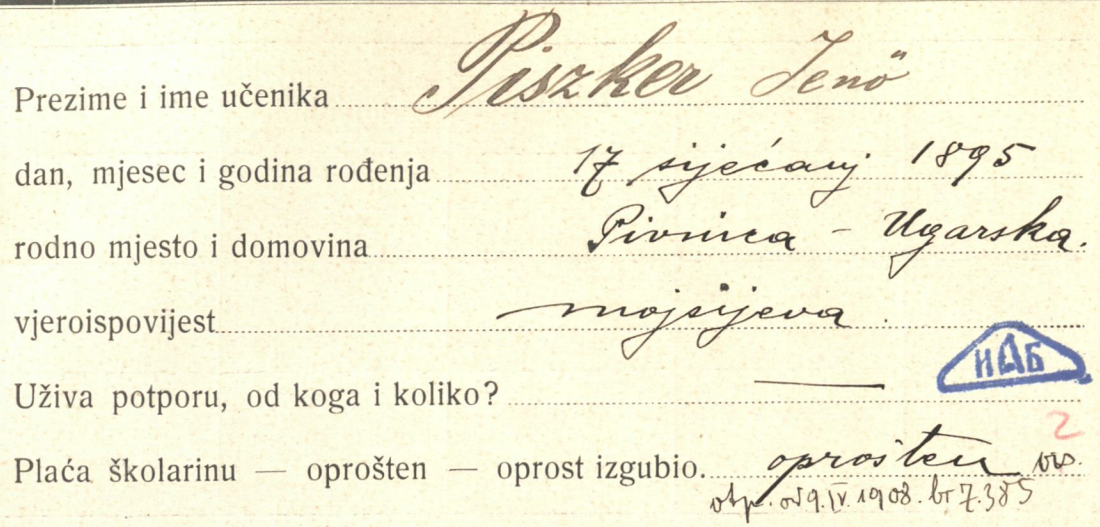 Prezime i ime učenika Piszker Jenö
dan, mjesec i godina rođenja 17 siječanj 1895
rodno mjesto i domovina Pivnica - Ugarska.
vjeroispovijest mojsijeva.
ИАБ
Uživa potporu, od koga i koliko? —
2
Plaća školarinu — oprošten — oprost izgubio. oprošten vis.
otp. od 9. IV. 1908. br 7.385